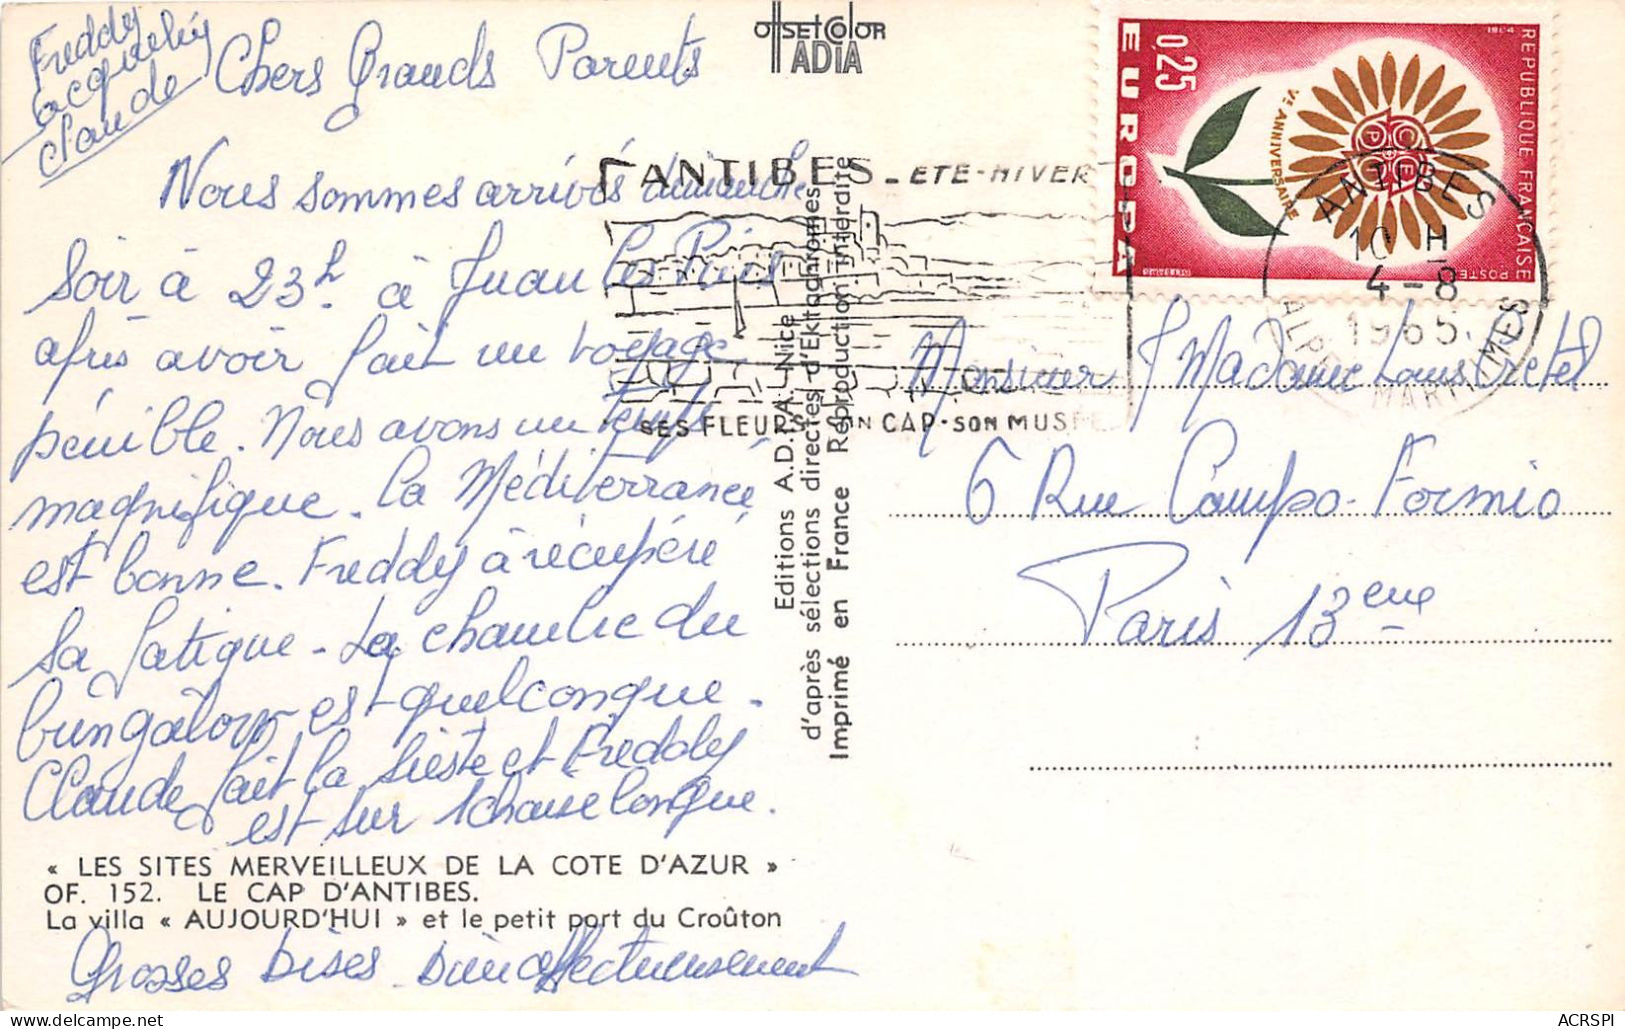 Freddy
Jacqueline
Claude
Chers Grands Parents
Nous sommes arrivés dimanche
soir à 23h. à Juan les Pins
après avoir fait un voyage
pénible. Nous avons un temps
magnifique. La Méditerranée
est bonne. Freddy à récupéré
sa fatigue - La chambre du
bungalow est quelconque.
Claude fait la sieste et Freddy
est sur 1 chaise longue.
« LES SITES MERVEILLEUX DE LA COTE D'AZUR »
OF. 152. LE CAP D'ANTIBES.
La villa « AUJOURD'HUI » et le petit port du Croûton
Grosses bises bien affectueusement
OFFSET COLOR
ADIA
Editions A.D.I.A. Nice
d'après sélections directes d'Ektachromes
Imprimé en France Reproduction interdite
ANTIBES - ETE-HIVER
SES FLEURS SON CAP-SON MUSÉE
REPUBLIQUE FRANÇAISE
POSTES
0,25
EUROPA
Ve ANNIVERSAIRE
CEPT
ANTIBES
10 H
4-8
1965
ALPES MARITIMES
Monsieur / Madame Louis Cretel
6 Rue Campo-Formio
Paris 13eme
ACRSPI